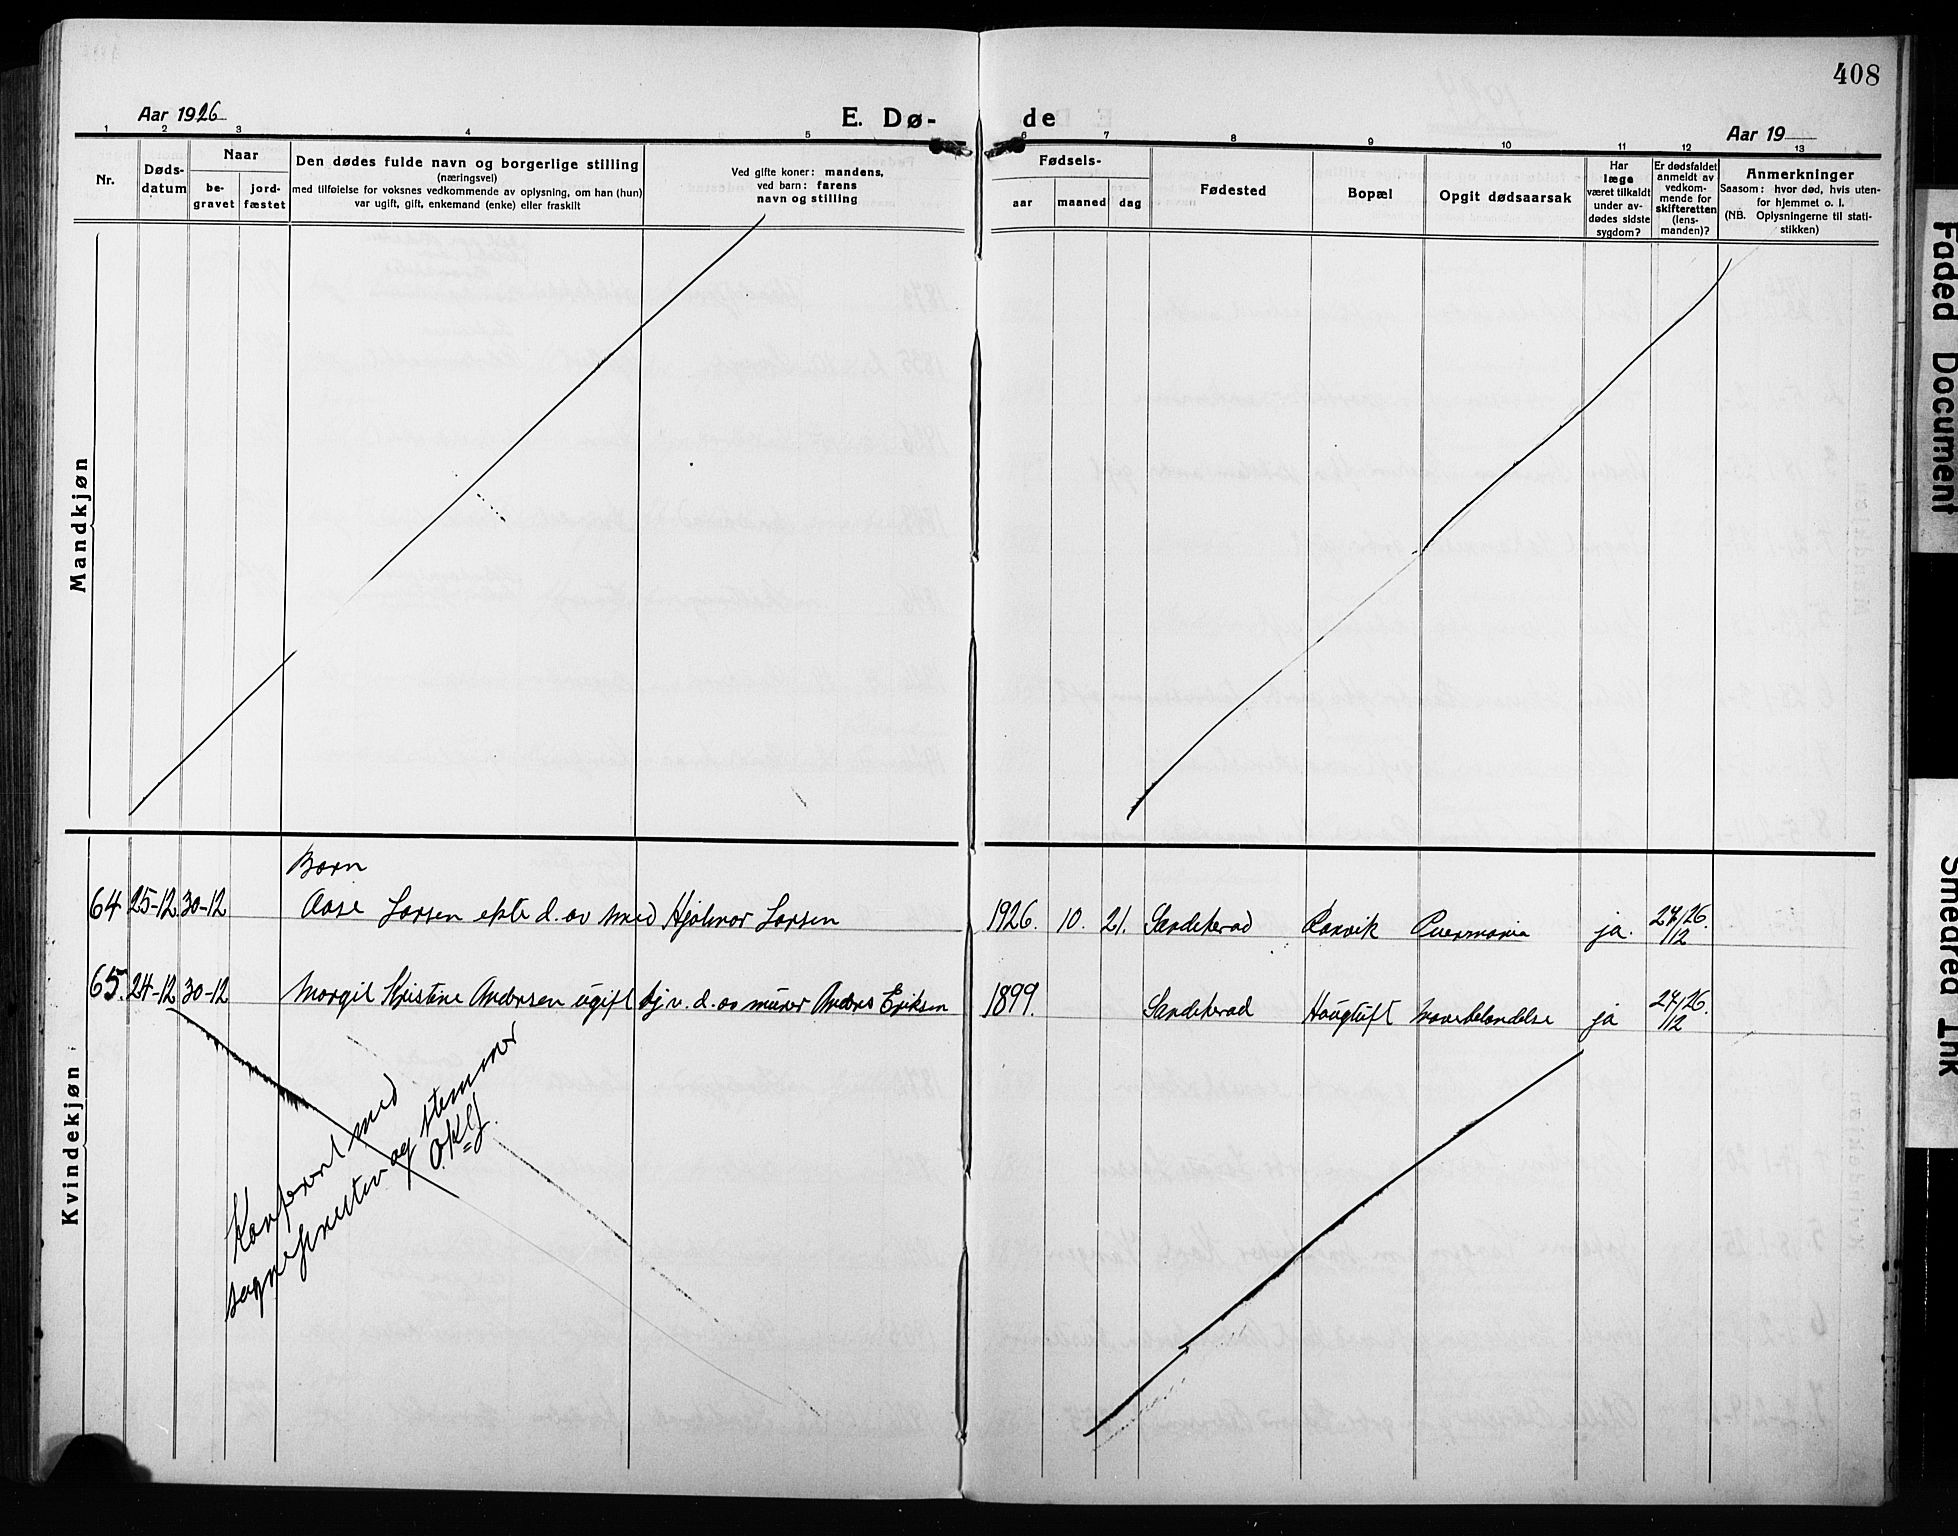 408
Aar 1926
E. Dø-
de
Aar 19
1 2 3 4 5 6 7 8 9 10 11 12 13
Nr.
Døds-
datum
Naar
be-
gravet
jord-
fæstet
Den dødes fulde navn og borgerlige stilling
(næringsvei)
med tilføielse for voksnes vedkommende av oplysning, om han (hun)
var ugift, gift, enkemand (enke) eller fraskilt
Ved gifte koner: mandens,
ved barn: farens
navn og stilling
Fødsels-
aar
maaned
dag
Fødested
Bopæl
Opgit dødsaarsak
Har
læge
været tilkaldt
under av-
dødes sidste
sygdom?
Er dødsfaldet
anmeldt av
vedkom-
mende for
skifteretten
(lens-
manden)?
Anmerkninger
Saasom: hvor død, hvis uten-
for hjemmet o. l.
(NB. Oplysningerne til stati-
stikken)
Mandkjøn
Kvindekjøn
Barn
64 25-12 30-12 Aase Larsen ekte d. av med Hjalmar Larsen 1926. 10. 21. Sandeherad Ranvik ja. 27/12 26.
65. 24-12 30-12 Margit Kristine Andersen ugift hj.v. d. av murer Anders Eriksen 1899. Sandeherad Haugtuft ja 27/12 26.
Konferert med
og stemmer
O.K.G.
Faded Document
Smeared Ink